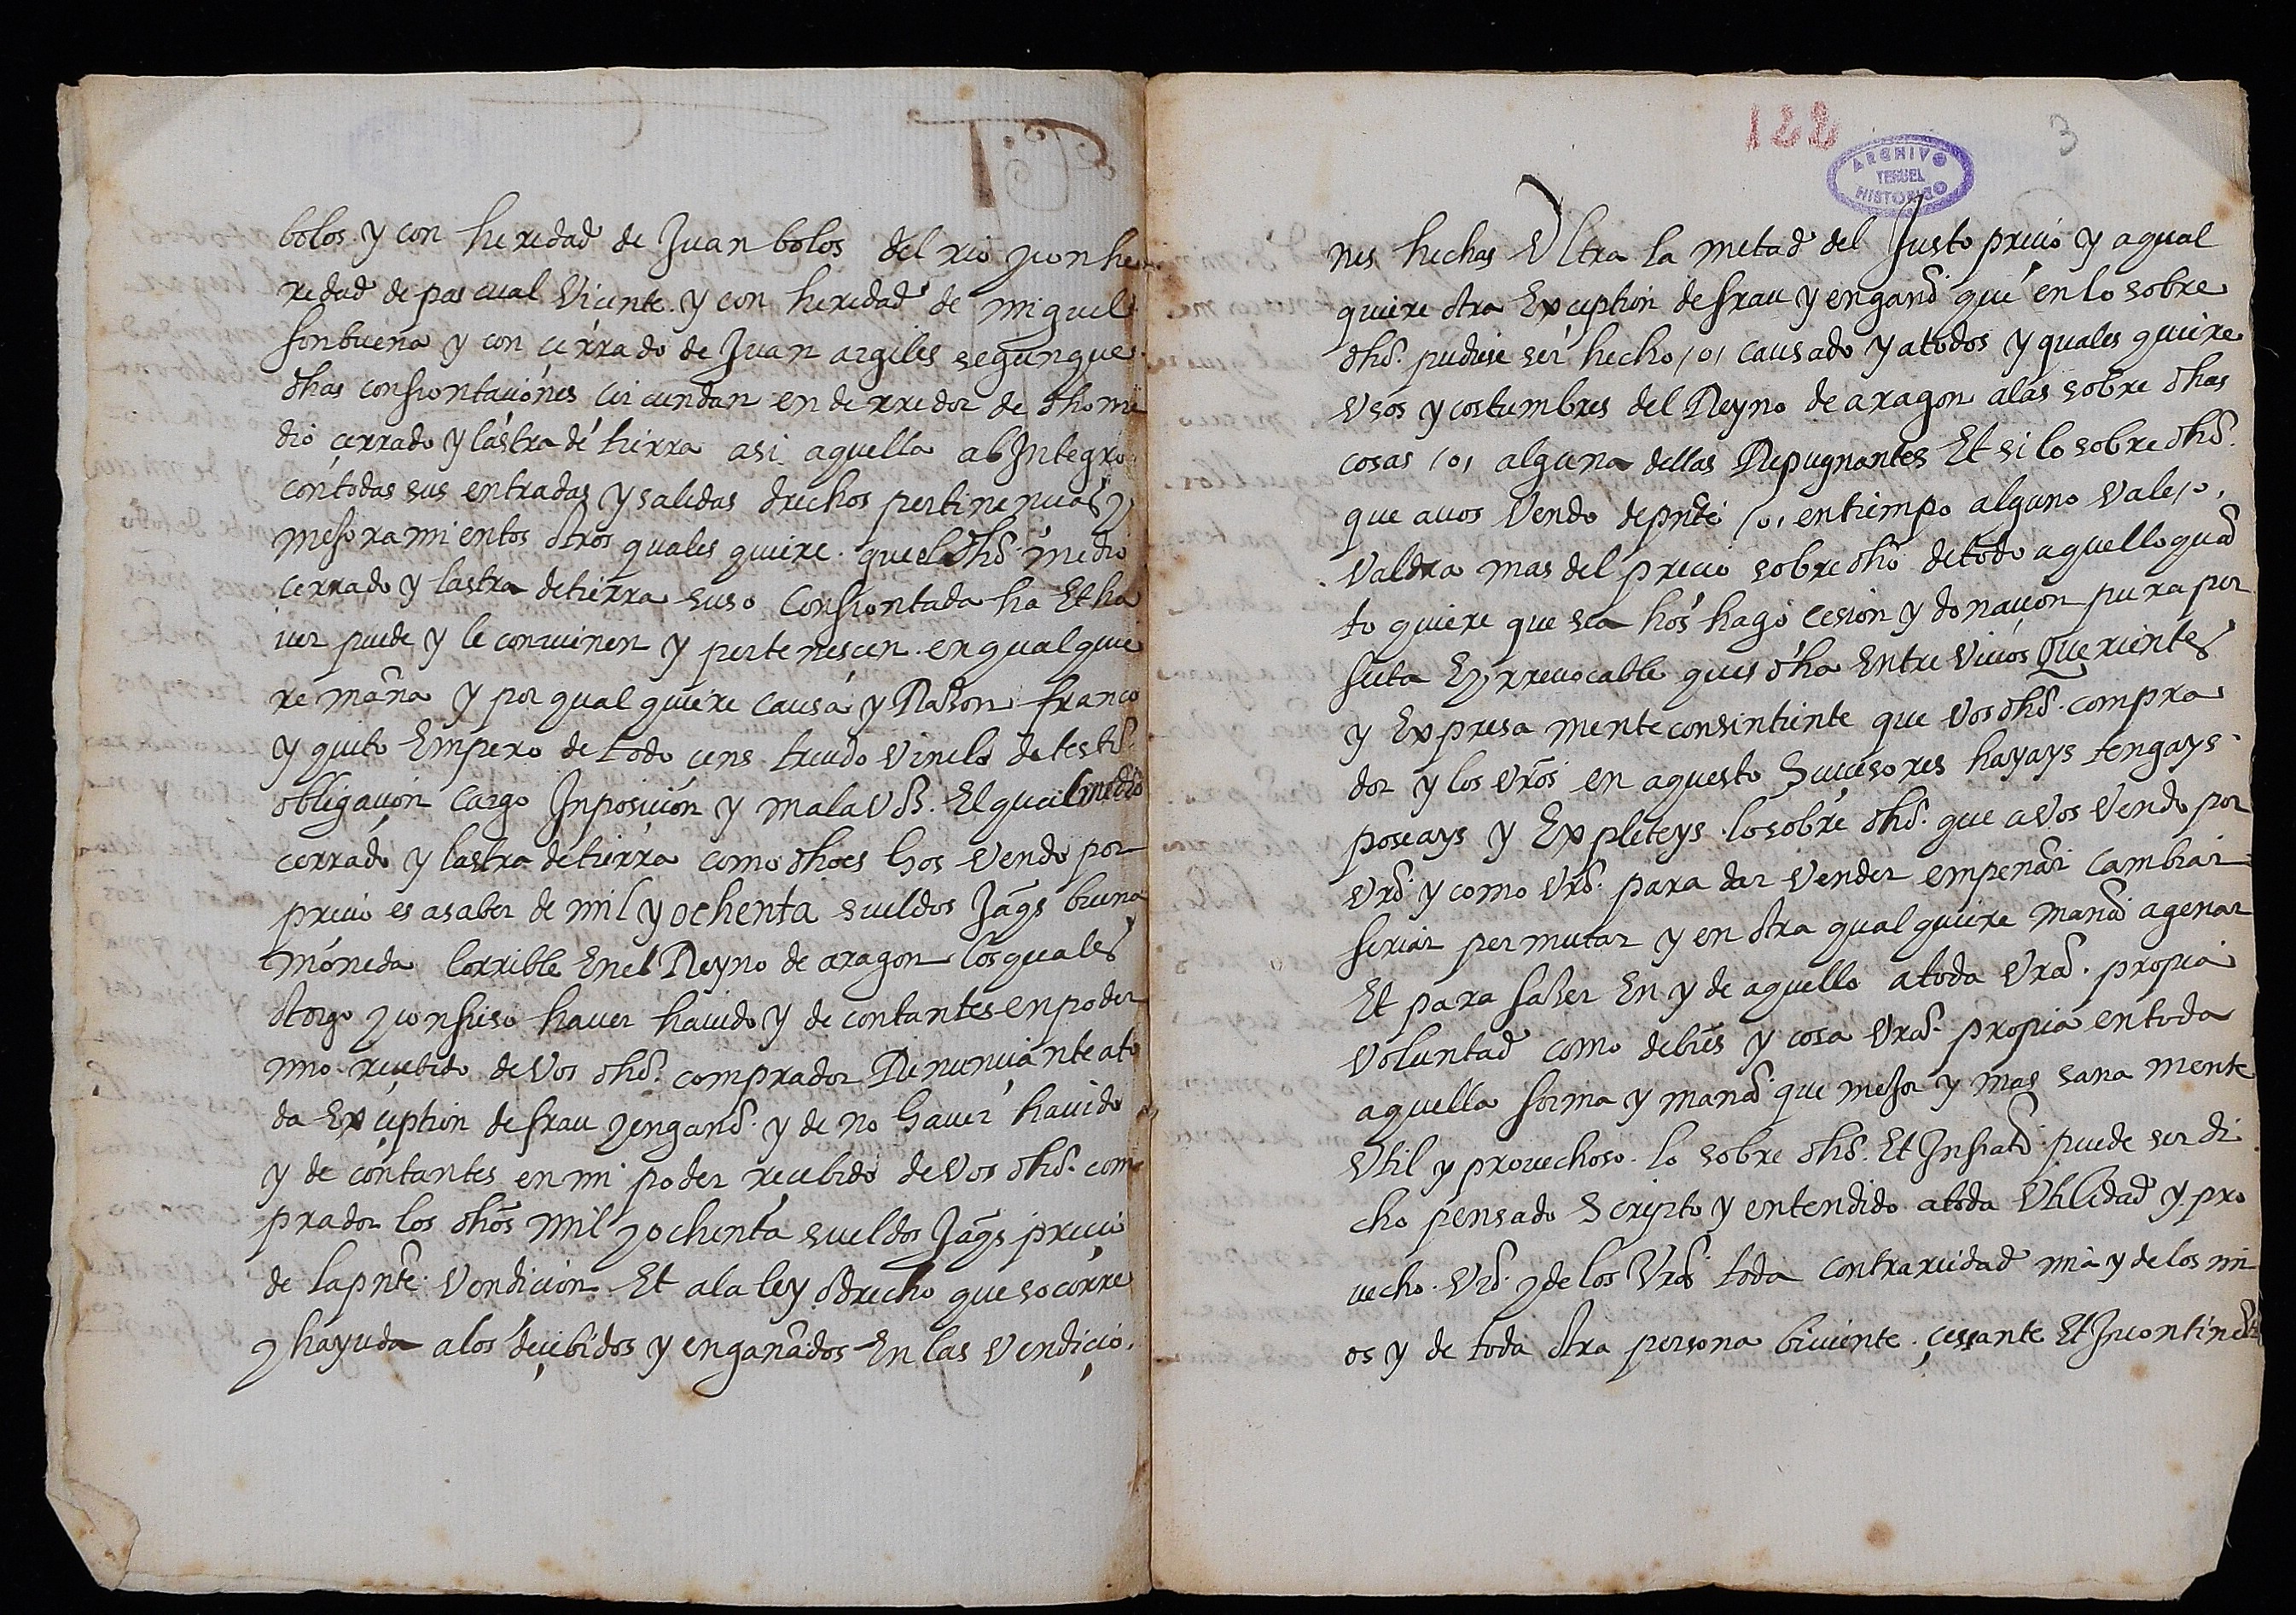 bolos y con heredad de Juan bolos del rio y con he
redad de pascual Vicente y con heredad de miguel
fonbuena y con cerrado de Juan argiles segun que
dhas confrontaciones circundan en derredor de dho me
dio cerrado y lastra de tierra asi aquella ab Integro
con todas sus entradas y salidas drechos pertinencias y
mejoramientos otros quales quiere que el dho medio
cerrado y lastra de tierra suso confrontada ha Et ha
uer puede y le conuinen y pertenescen en qual quie
re mana y por qual quiere causa y Razon franco
y quito Empero de todo cens treudo vinclo de testo
obligacion cargo Inposicion y mala voz. El qual medio
cerrado y lastra de tierra como dho es hos vendo por
precio es asaber de mil y ochenta sueldos Jaqs buena
moneda corrible En el Reyno de aragon los quales
otorgo y confieso hauer hauido y de contantes en poder
mio recebido de Vos dho comprador Renunciante a to
da Exception de frau y engano y de no hauer hauido
y de contantes en mi poder recebido de vos dho com
prador los dhos mil y ochenta sueldos Jaqs precio
de la pnte vendicion Et ala ley o drecho que socorre
y hayuda alos decebidos y enganados En las vendicio
122
3
ARCHIVO
TERUEL
HISTORICO
nes hechas Vltra la metad del Justo precio y a qual
quiere otra Exception de frau y engano que en lo sobre
dho. pudiese ser hecho /o/ causado y a todos y quales quiere
vsos y costumbres del Reyno de aragon alas sobre dhas
cosas /o/ alguna dellas Repugnantes Et si lo sobre dho.
que a uos vendo de pnte /o/ en tiempo alguno vale /o/
valdra mas del precio sobre dho de todo aquello quan
to quiere que sea hos hago cesion y donacion pura per
feta E yrreuocable ques dha Entre viuos Queriente
y Expresa mente consintiente que vos dho. compra
dor y los vros en aquesto Sucesores hayays tengays
poseays y Expleteys lo sobre dho. que a vos vendo por
vro y como vro. para dar vender empenar cambiar
feriar permutar y en otra qual quiere mana agenar
Et para fazer En y de aquello a toda vra. propia
voluntad como de bies y cosa vra. propia en toda
aquella forma y mana que mejor y mas sana mente
vtil y prouechoso lo sobre dho. Et Infrato puede ser di
cho pensado Scripto y entendido a toda vtilidad y pro
uecho vro. y de los vros toda contrariedad mia y de los mi
os y de toda otra persona biuiente cessante Et Incontinente